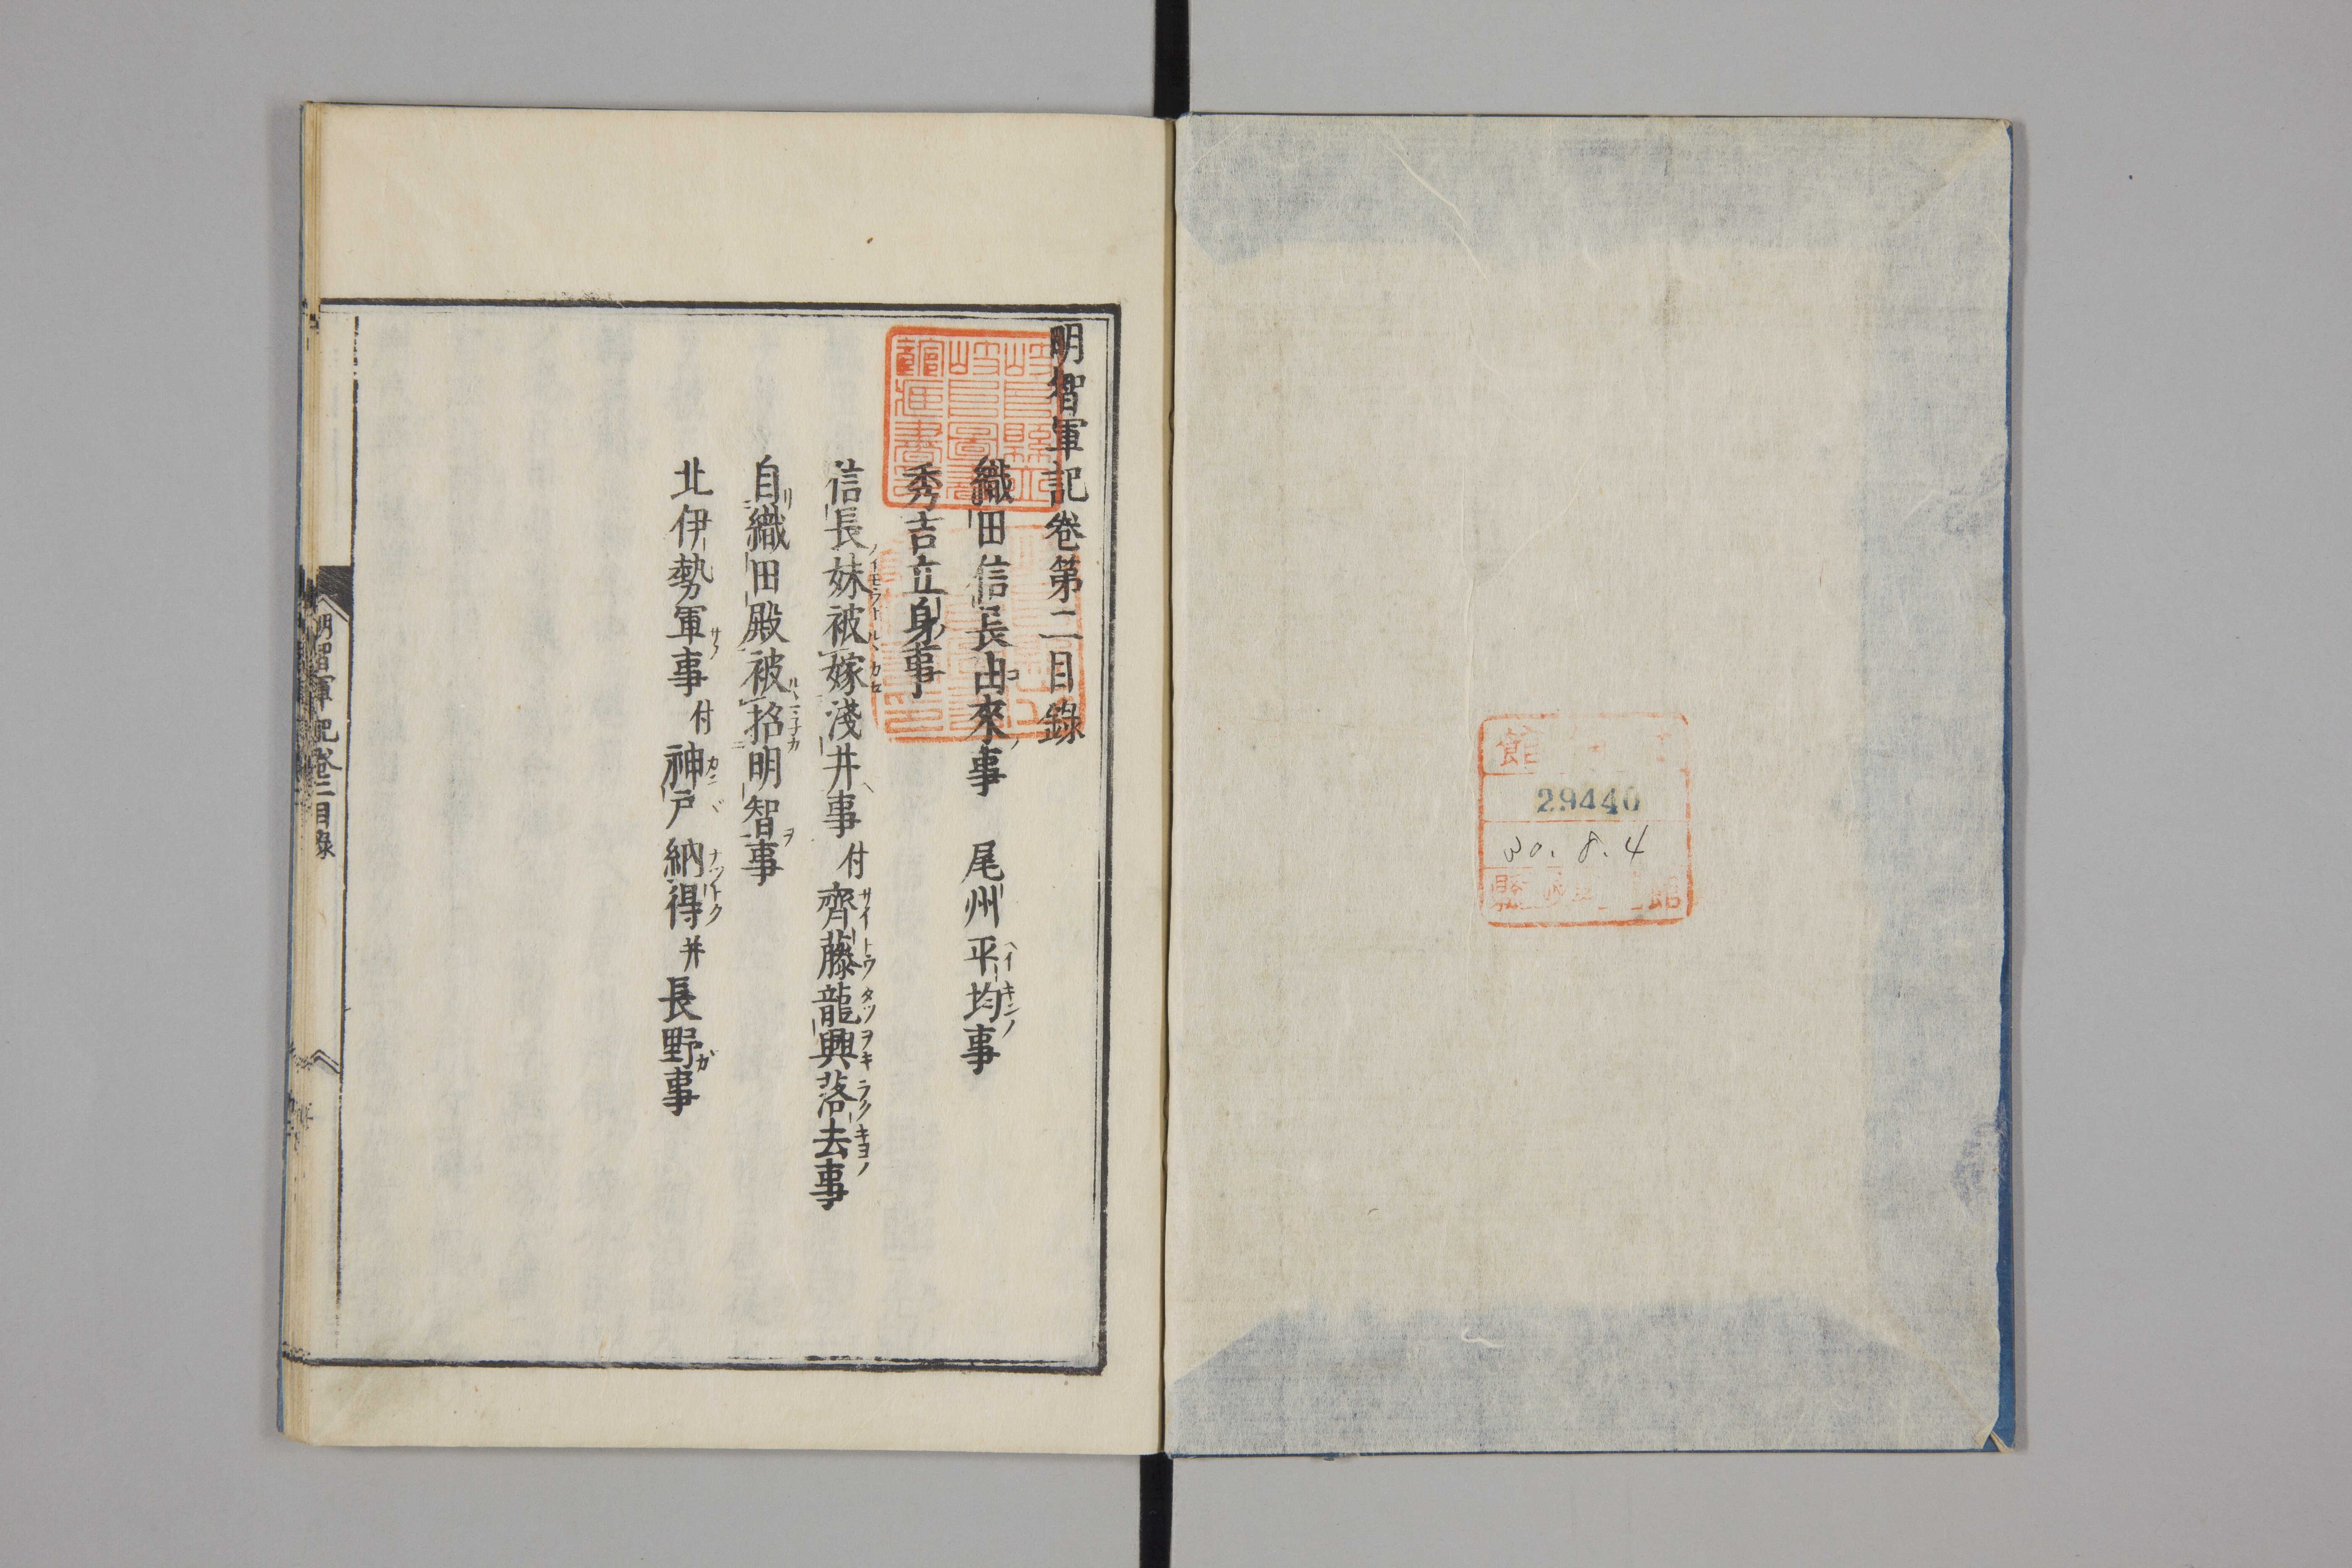 29440
30.8.4
明智軍記卷第二目錄
織田信長由來事 尾州平均事
秀吉立身事
信長妹被嫁淺井事 付齊藤龍興落去事
自織田殿被招明智事
北伊勢軍事 付神戸納得 并長野事
明智軍記卷二目錄